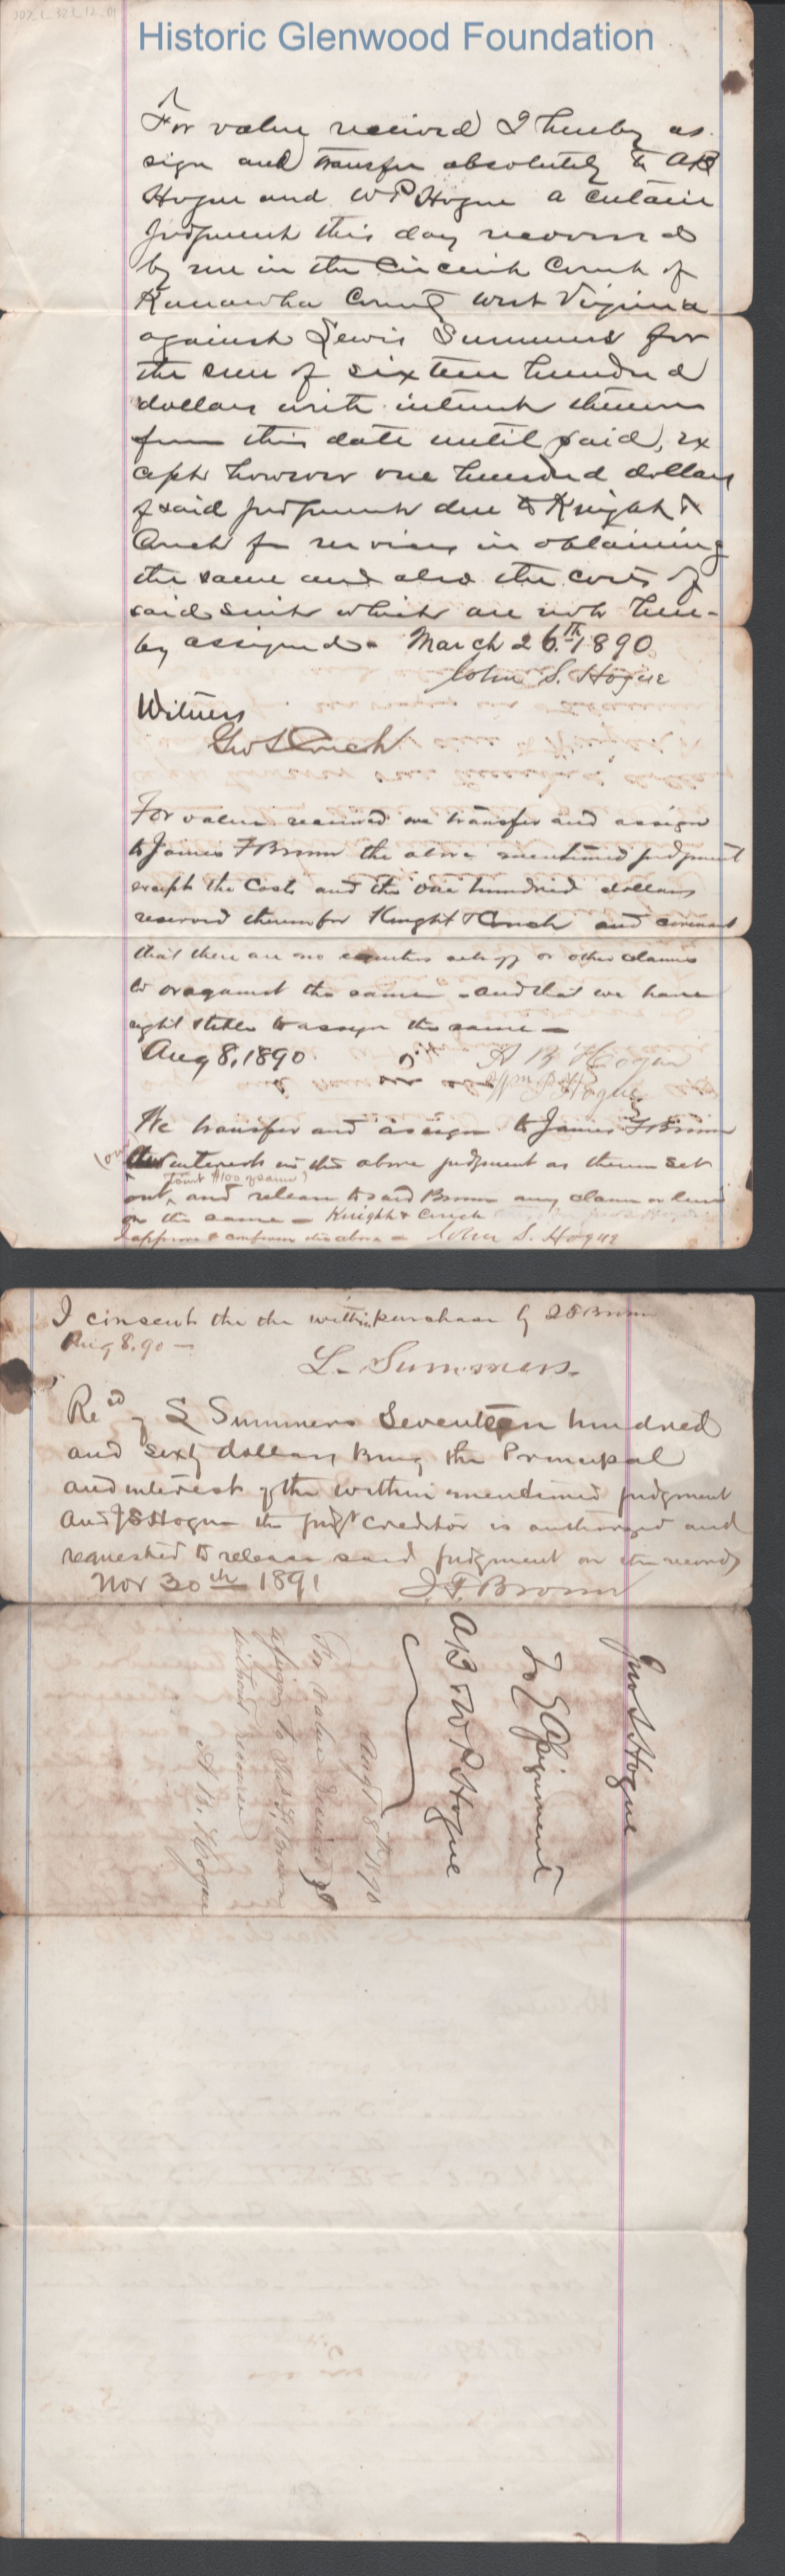 Historic Glenwood Foundation
For value received I hereby as
sign and transfer absolutely to AB
Hogue and W P Hogue a certain
judgment this day recovered
by me in the Circuit Court of
Kanawha County West Virginia
against Lewis Summers for
the sum of sixteen hundred
dollars with interest thereon
from this date until paid, ex
cept however one hundred dollars
of said judgment due to Knight &
Couch for services in obtaining
the same and also the costs of
said suit which are not here-
by assigned. March 26th 1890
John S. Hogue
Witness
Geo S Couch
For value received we transfer and assign
to James F Brown the above mentioned judgment
except the Costs and the one hundred dollars
reserved therein for Knight & Couch and covenant
that there are no equities setoff or other claims
to or against the same - and that we have
right & title to assign the same -
Aug 8, 1890
A B Hogue
Wm P Hogue
We transfer and assign to James F Brown
(our
interest in the above judgment as therein set
(ount $100 of same)
out, and release to said Brown any claim or lien
on the same - Knight & Couch
I approve & confirm the above - John S. Hogue
I consent the the within purchase by Brown
Aug 8. 90 -
L. Summers.
Recd of L Summers Seventeen hundred
and sixty dollars being the Principal
and interest of the within mentioned judgment
And JS Hogue the judgt creditor is authorized and
requested to release said judgment on the records
Nov 30th 1891 J. F. Brown
Jno S Hogue
To } Assignment
AB & W P Hogue
Augt 8th 1890
For value received I
assign to Jas F. Brown
without recourse
A B. Hogue